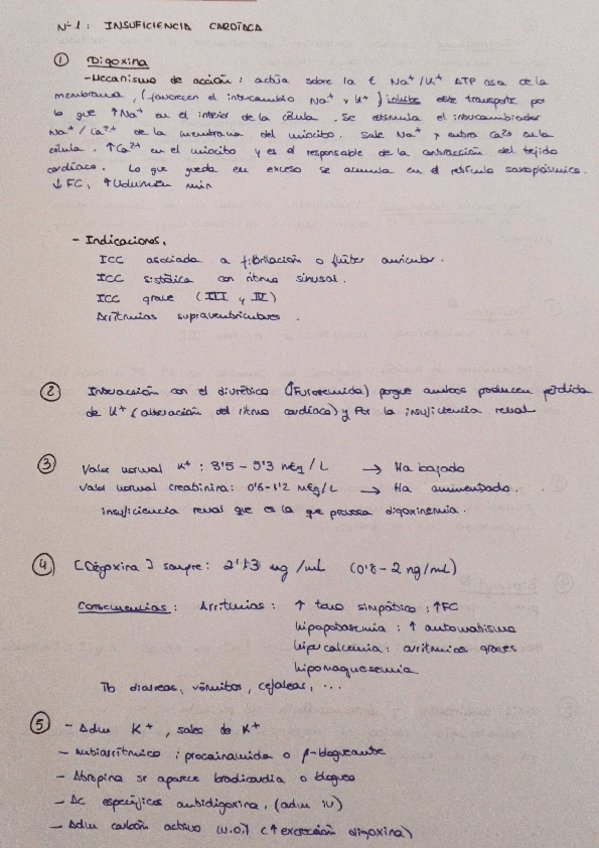 Nº1: INSUFICIENCIA CARDÍACA
① Digoxina
- Mecanismo de acción: actúa sobre la Na⁺/K⁺ ATP asa de la
membrana, (favorecen el intercambio Na⁺ y K⁺) inhibe este transporte por
lo que ↑Na⁺ en el interior de la célula. Se estimula el intercambiador
Na⁺/Ca²⁺ de la membrana del miocito. Sale Na⁺ y entra Ca²⁺ en la
célula. ↑Ca²⁺ en el miocito y es el responsable de la contracción del tejido
cardíaco. Lo que queda en exceso se acumula en el retículo sarcoplásmico.
↓FC, ↑Volumen min
- Indicaciones.
ICC asociada a fibrilación o flúter auricular.
ICC sistólica con ritmo sinusal.
ICC grave (III y IV)
Arritmias supraventriculares.
② Interacción con el diurético (Furosemida) porque ambos producen pérdida
de K⁺ (alteración del ritmo cardíaco) y por la insuficiencia renal
③ Valor normal K⁺: 3'5 - 5'3 mEq/L → Ha bajado
Valor normal creatinina: 0'6-1'2 mEq/L → Ha aumentado.
insuficiencia renal que es la que provoca digoxinemia.
④ [Digoxina] sangre: ng/mL (0'8-2 ng/mL)
Consecuencias: Arritmias: ↑ tono simpático: ↑FC
hipopotasemia: ↑ automatismo
hipercalcemia: arritmias graves
hipomagnesemia
Tb diarreas, vómitos, cefaleas, ...
⑤ - Adm K⁺, sales de K⁺
- Antiarrítmico: procainamida o β-bloqueante
- Atropina se aparece bradicardia o bloqueo
- Ac específicos antidigoxina, (adm iv)
- Adm carbón activo (v.o.) (↑ excreción digoxina)